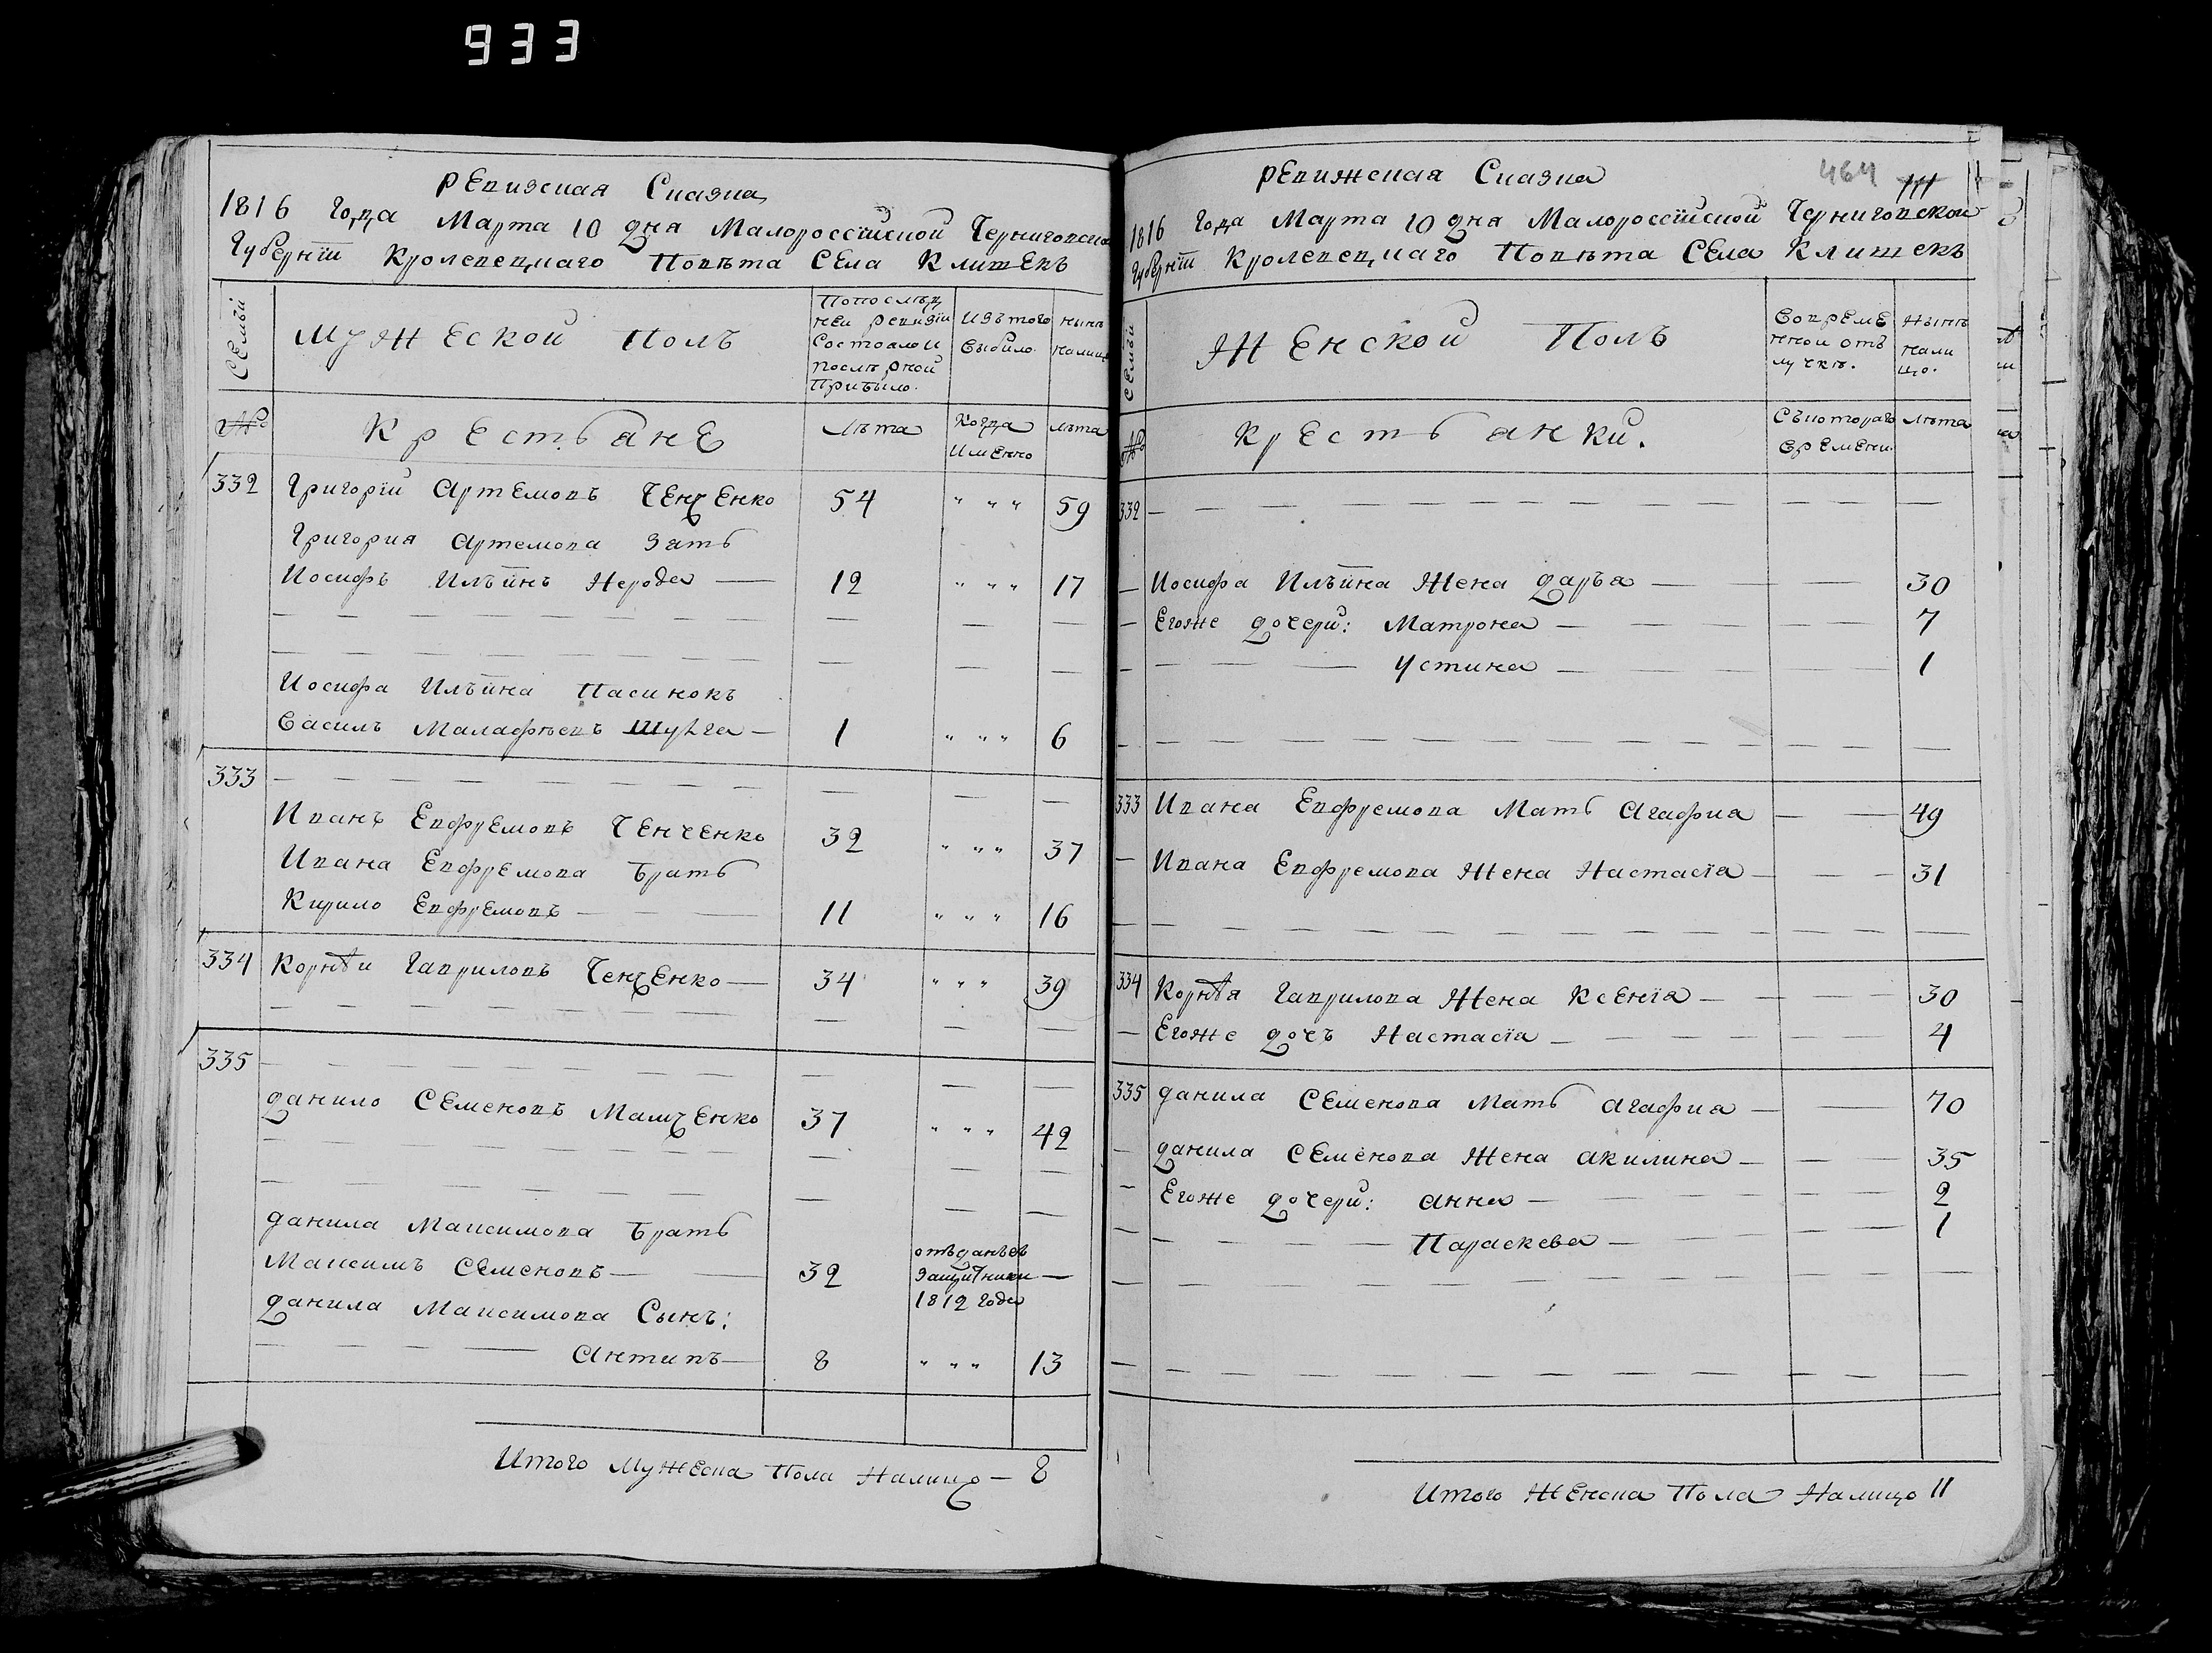 933
Ревизская Сказка
1816 Года Марта 10 дня Малороссійской Черниговской
Губерніи Кролевецкаго Повѣта Села Клишекъ
Семьи
Мужеской Полъ
Попослѣд
неи ревизіи
Состояло и
послѣ оной
Прибыло.
Изътого
Выбыло
нынѣ
налицо
№
Крестьяне
Лѣта
Когда
Именно
лѣта
332 Григорій Артемовъ Ченченко 54 " " " 59
Григория Артемова Зять
Иосифъ Ильинъ Нерода — 12 " " " 17
Иосифа Ильина Пасинокъ
Василъ Малафѣевъ Шулга — 1 " " " 6
333
Иванъ Евфремовъ Ченченко 32 " " " 37
Ивана Евфремова Братъ
Кирило Евфремовъ — 11 " " " 16
334 Корнѣи Гавриловъ Ченченко — 34 " " " 39
335
данило Семеновъ Мамченко 37 " " " 42
данила Максимова Братъ
Максимъ Семеновъ — 32 отъданъ въ
защитники —
1812 Года
Данила Максимова Сынъ:
Антипъ — 8 " " " 13
Итого Мужеска Пола Налицо — 8
464 111
Ревижская Сказка
1816 Года Марта 10 дня Малороссійской Черниговской
Губерніи Кролевецкаго Повѣта Села Клишекъ
Семьи
Женской Полъ
Вовреме
нной отъ
лучкѣ.
Нынѣ
нали
цо.
№
Крестьянки.
Съкотораго
времени
Лѣта
332
Иосифа Ильина Жена Даръя — 30
Егоже дочери: Матрона — 7
Устина — 1
333 Ивана Евфремова Мать Агафия — 49
Ивана Евфремова Жена Настасія — 31
334 Корнѣя Гаврилова Жена Ксенія — 30
Егоже дочъ Настасія — 4
335 данила Семенова Мать Агафия — 70
данила Семенова Жена Акилина — 35
Егоже дочери: Анна — 2
Параскева — 1
Итого Женска Пола Налицо 11